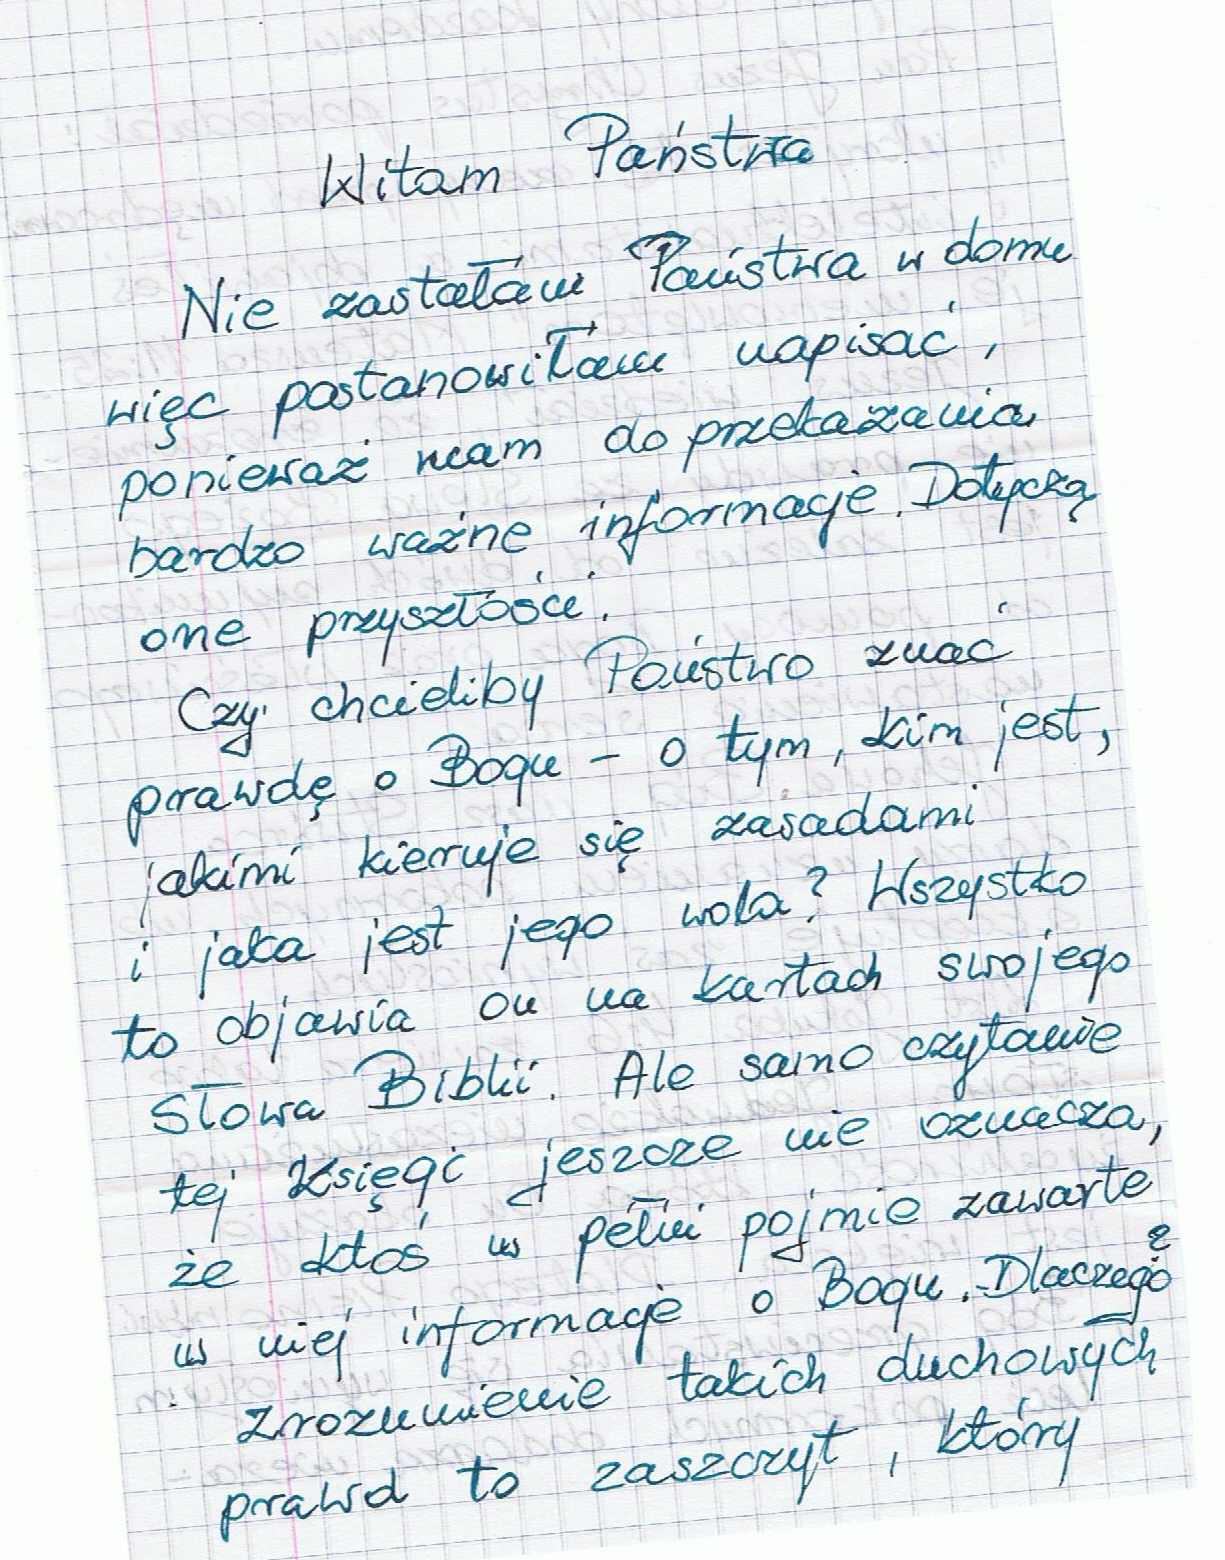 Witam Państwa
Nie zastałam Państwa w domu
więc postanowiłam napisać,
ponieważ mam do przekazania
bardzo ważne informacje. Dotyczą
one przyszłości.
Czy chcieliby Państwo znać
prawdę o Bogu – o tym, kim jest,
jakimi kieruje się zasadami
i jaka jest jego wola? Wszystko
to objawia on na kartach swojego
Słowa Biblii. Ale samo czytanie
tej Księgi jeszcze nie oznacza,
że ktoś w pełni pojmie zawarte
w niej informacje o Bogu. Dlaczego?
Zrozumienie takich duchowych
prawd to zaszczyt, który